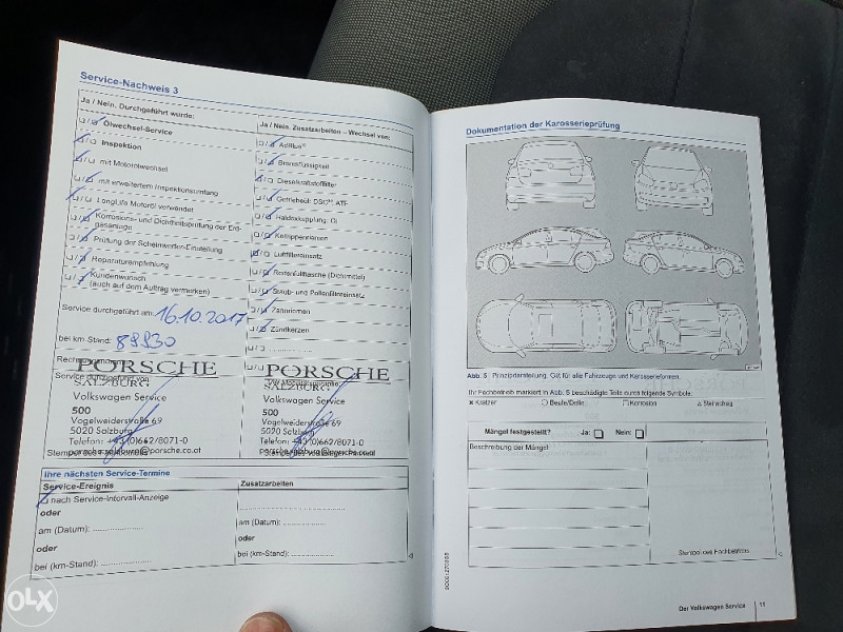 Service-Nachweis 3
Ja / Nein, Durchgeführt wurde:
Ölwechsel-Service
Inspektion
mit Motorölwechsel
mit erweitertem Inspektionsumfang
LongLife Motoröl verwendet
Korrosions- und Dichtheitsprüfung der Erd-
gasanlage
Prüfung der Scheinwerfer-Einstellung
Reparaturempfehlung
Kundenwunsch
(auch auf dem Auftrag vermerken)
Service durchgeführt am: 16.10.2017
bei km-Stand:
PORSCHE
SALZBURG
Volkswagen Service
500
Vogelweiderstraße 69
5020 Salzburg
Telefon: +43(0)662/8071-0
Ja / Nein, Zusatzarbeiten – Wechsel von:
AdBlue®
Bremsflüssigkeit
Dieselkraftstofffilter
Getriebeöl: DSG®/ ATF
Haldexkupplung: Öl
Keilrippenriemen
Luftfiltereinsatz
Reifenfüllflasche (Dichtmittel)
Staub- und Pollenfiltereinsatz
Zahnriemen
Zündkerzen
PORSCHE
SALZBURG
Volkswagen Service
500
Vogelweiderstraße 69
5020 Salzburg
Telefon: +43(0)662/8071-0
Ihre nächsten Service-Termine
Service-Ereignis
Zusatzarbeiten
nach Service-Intervall-Anzeige
oder
am (Datum):
oder
bei (km-Stand):
am (Datum):
oder
bei (km-Stand):
OLX
Dokumentation der Karosserieprüfung
Abb. 5 Prinzipdarstellung. Gilt für alle Fahrzeuge und Karosserieformen.
Ihr Fachbetrieb markiert in Abb. 5 beschädigte Teile durch folgende Symbole:
x Kratzer
○ Beule/Delle
□ Korrosion
△ Steinschlag
Mängel festgestellt? Ja: Nein:
Beschreibung der Mängel
Stempel des Fachbetriebs
Der Volkswagen Service 11